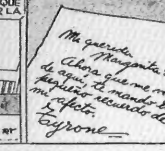 QUE
R LA
Mi querida
Margarita
Ahora que me m
de aquí te mando
pequeño recuerdo de
mi afecto.
Tyrone
RY